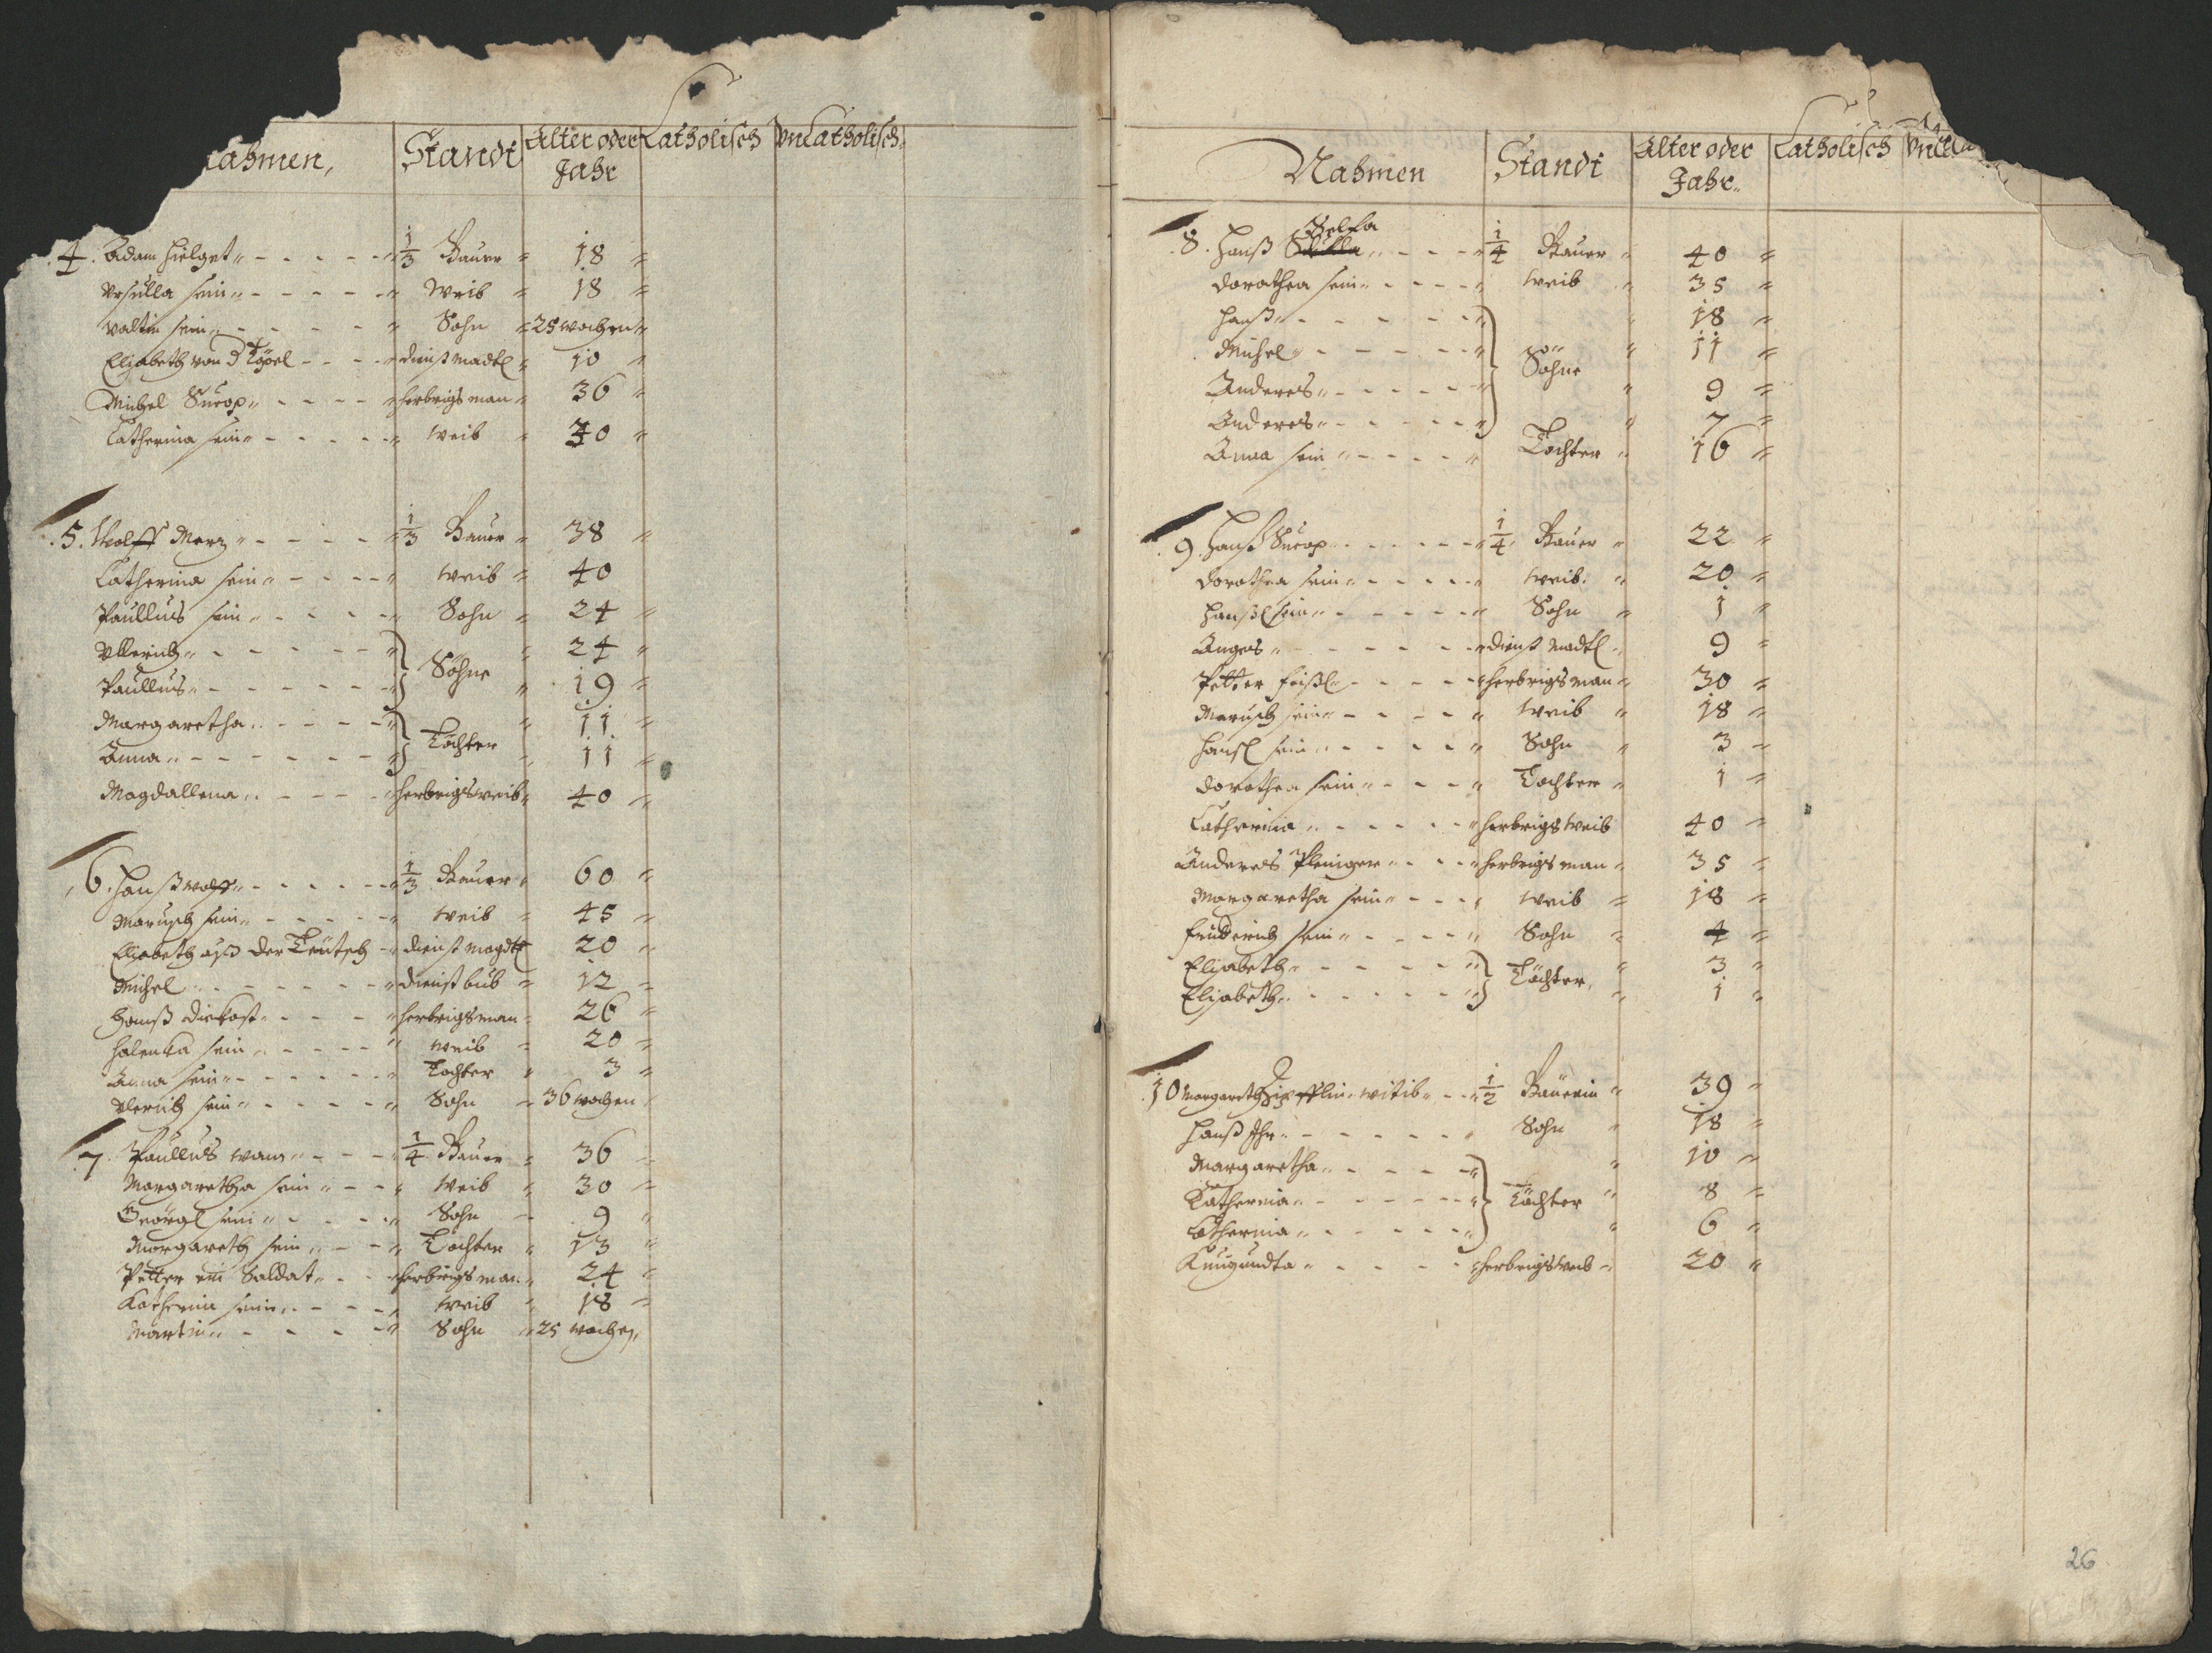 Nahmen, Standt Alter oder Jahr Catholisch Vncatholisch.
4. Adam Hielget 1/3 Bauer 18
Vrsulla sein Weib 18
Valtin sein Sohn 25 wochen
Elisabeth von d Töpel dienst madl 10
Michel Surop herbrigs man 36
Catherina sein weib 30
5. Wolff Merz 1/3 Bauer 38
Catherina sein weib 40
Paullus sein Sohn 24
Vllerich 24
Paullus Söhne 19
Margaretha 11
Anna Töchter 11
Magdallena herbrigsweib 40
6. Hanß Wolff 1/3 Bauer 60
Marusch sein weib 45
Elisabeth auß der Teutsch dienst magdl 20
Michel dienst bub 12
Hanß Diekast herbrigsman 26
Halenka sein weib 20
Anna sein Tochter 3
Vlerich sein Sohn 36 wochen
7. Paullus wam 1/4 Bauer 36
Margaretha sein weib 30
Georgl sein Sohn 9
Margareth sein Tochter 13
Petter ein Soldat herbrigs man 24
Katherina sein weib 18
Martin Sohn 25 wochen
Nahmen Standt Alter oder Jahr. Catholisch
8. Hanß Selka 1/4 Bauer 40
Dorathea sein weib 35
Hanß 18
Michel Söhne 11
Anderes 9
Anderes 7
Anna sein Tochter 16
9. Hanß Surop 1/4 Bauer 22
Dorothea sein weib. 20
Hanßl sein Sohn 1
Anges dienst madl 9
Petter feißl herbrigs man 30
Marusch sein weib 18
Hansl sein Sohn 3
Dorothea sein Tochter 1
Catherina herbrigs weib 40
Anderes Pleninger herbrigs man 35
Margaretha sein weib 18
friderich sein Sohn 4
Elisabeth 3
Elisabeth Töchter 1
10 Margareth witib 1/2 Bäuerin 39
Hanß Ihr Sohn 18
Margaretha 10
Katherina Töchter 8
Catherina 6
Kunigundta herbrigsweib 20
26